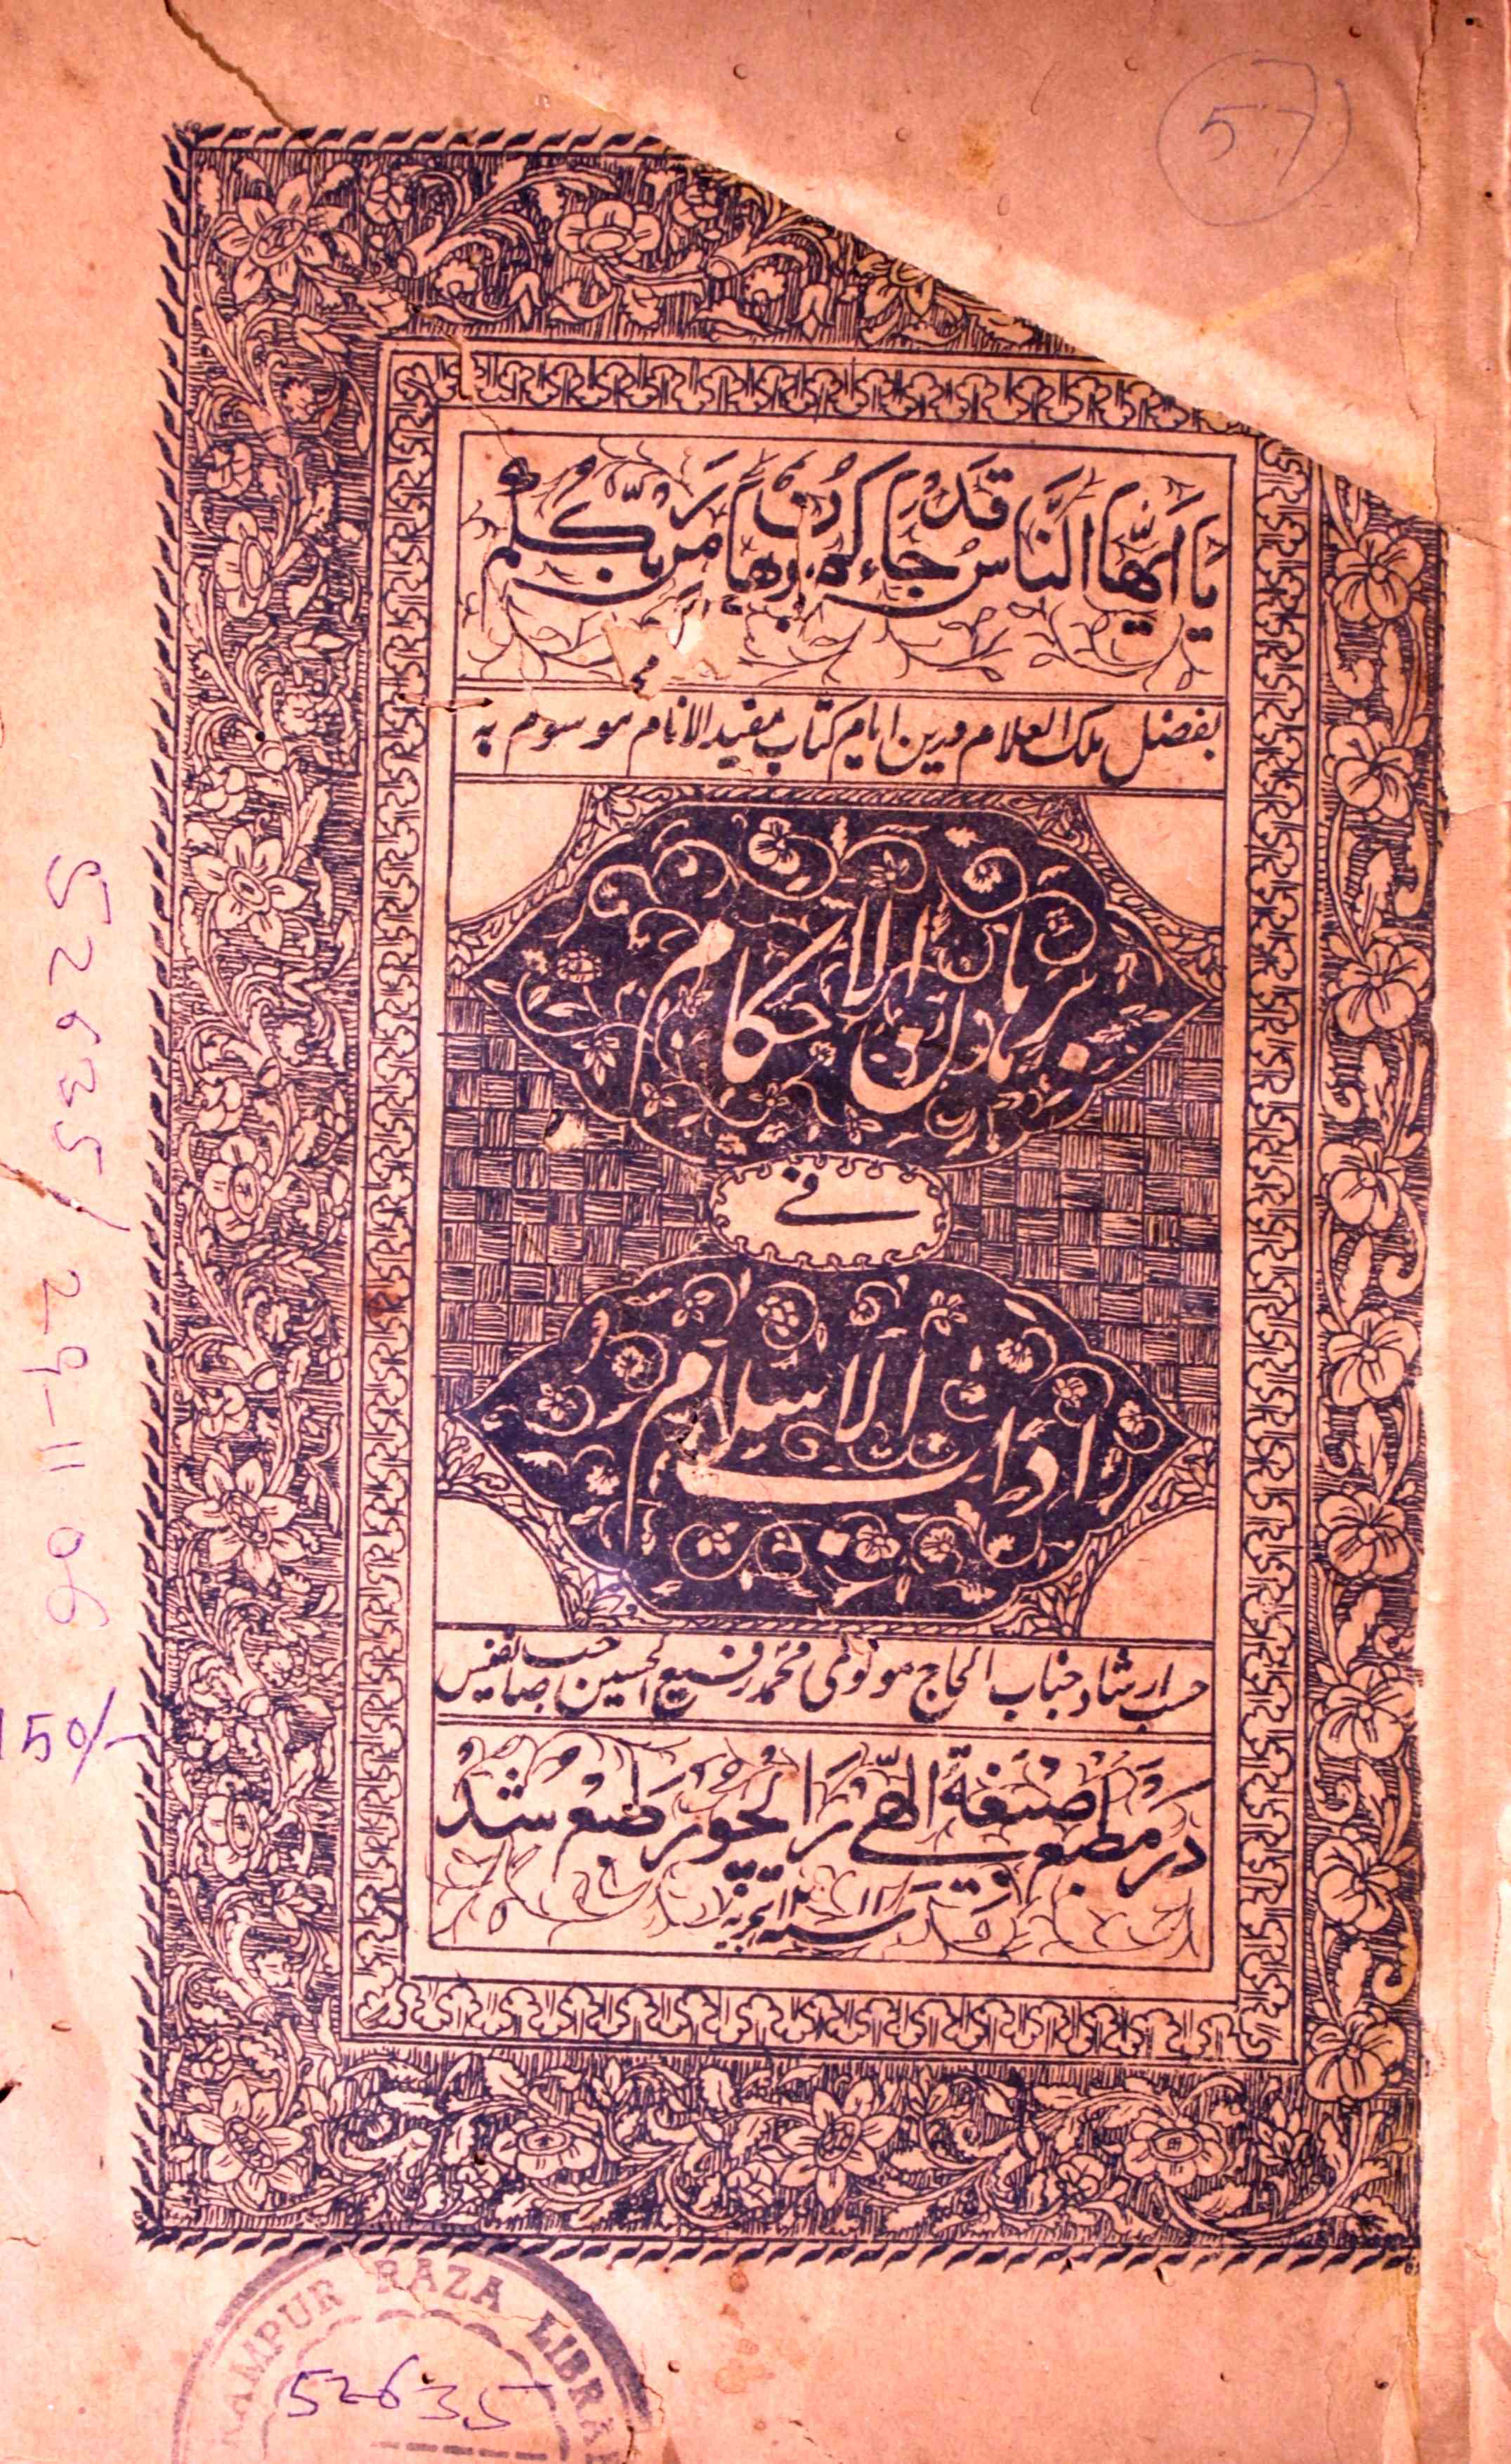 57
یا ایھا الناس قد جاءکم برھان من ربکم
بفضل ملک العلام درین ایام کتاب مفید الانام موسوم بہ
برہان الاحکام
فے
اداب الاسلام
حسب ارشاد جناب الحاج مولوی محمد رفیع الحسین صاحب
در مطبع صبغة اللهی رایچور طبع شد
52635/ 29-11-06
150/-
RAMPUR RAZA LIBRA
52635